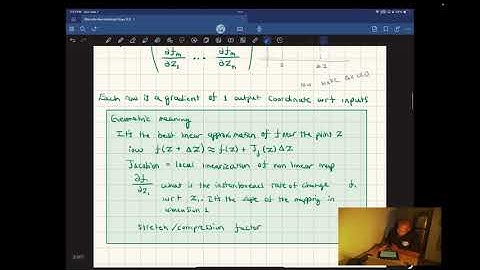 ∂fm/∂z1 ... ∂fm/∂zn
Each row is a gradient of 1 output coordinate wrt inputs
Geometric meaning
It's the best linear approximation of f near the point z
f(z + Δz) ≈ f(z) + Jf(z) Δz
Jacobian = local linearization of non linear map
∂f1/∂z1 what is the instantaneous rate of change f1
wrt z1. Its the slope of the mapping in
dimension 1
stretch/compression factor